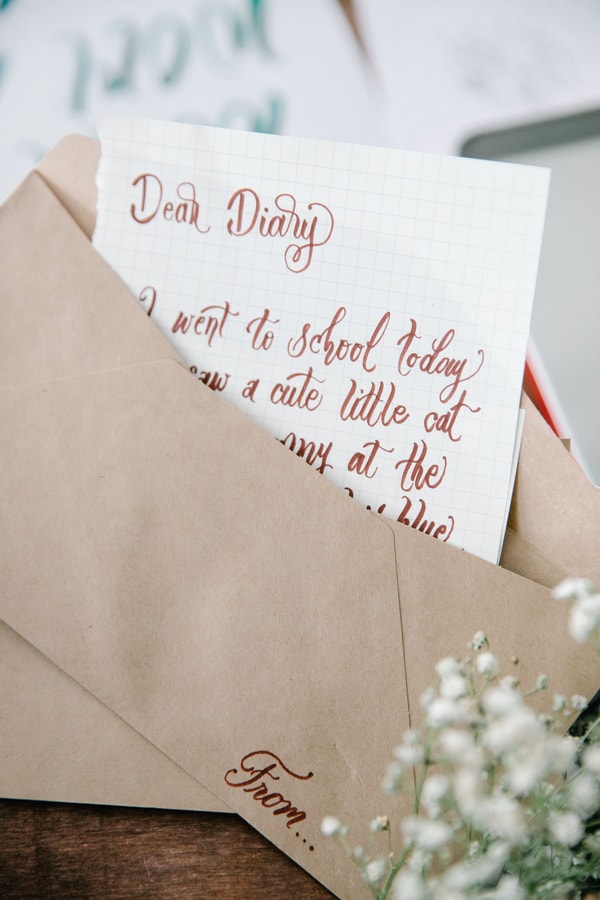 Dear Diary
I went to school today
saw a cute little cat
at the
blue
From...